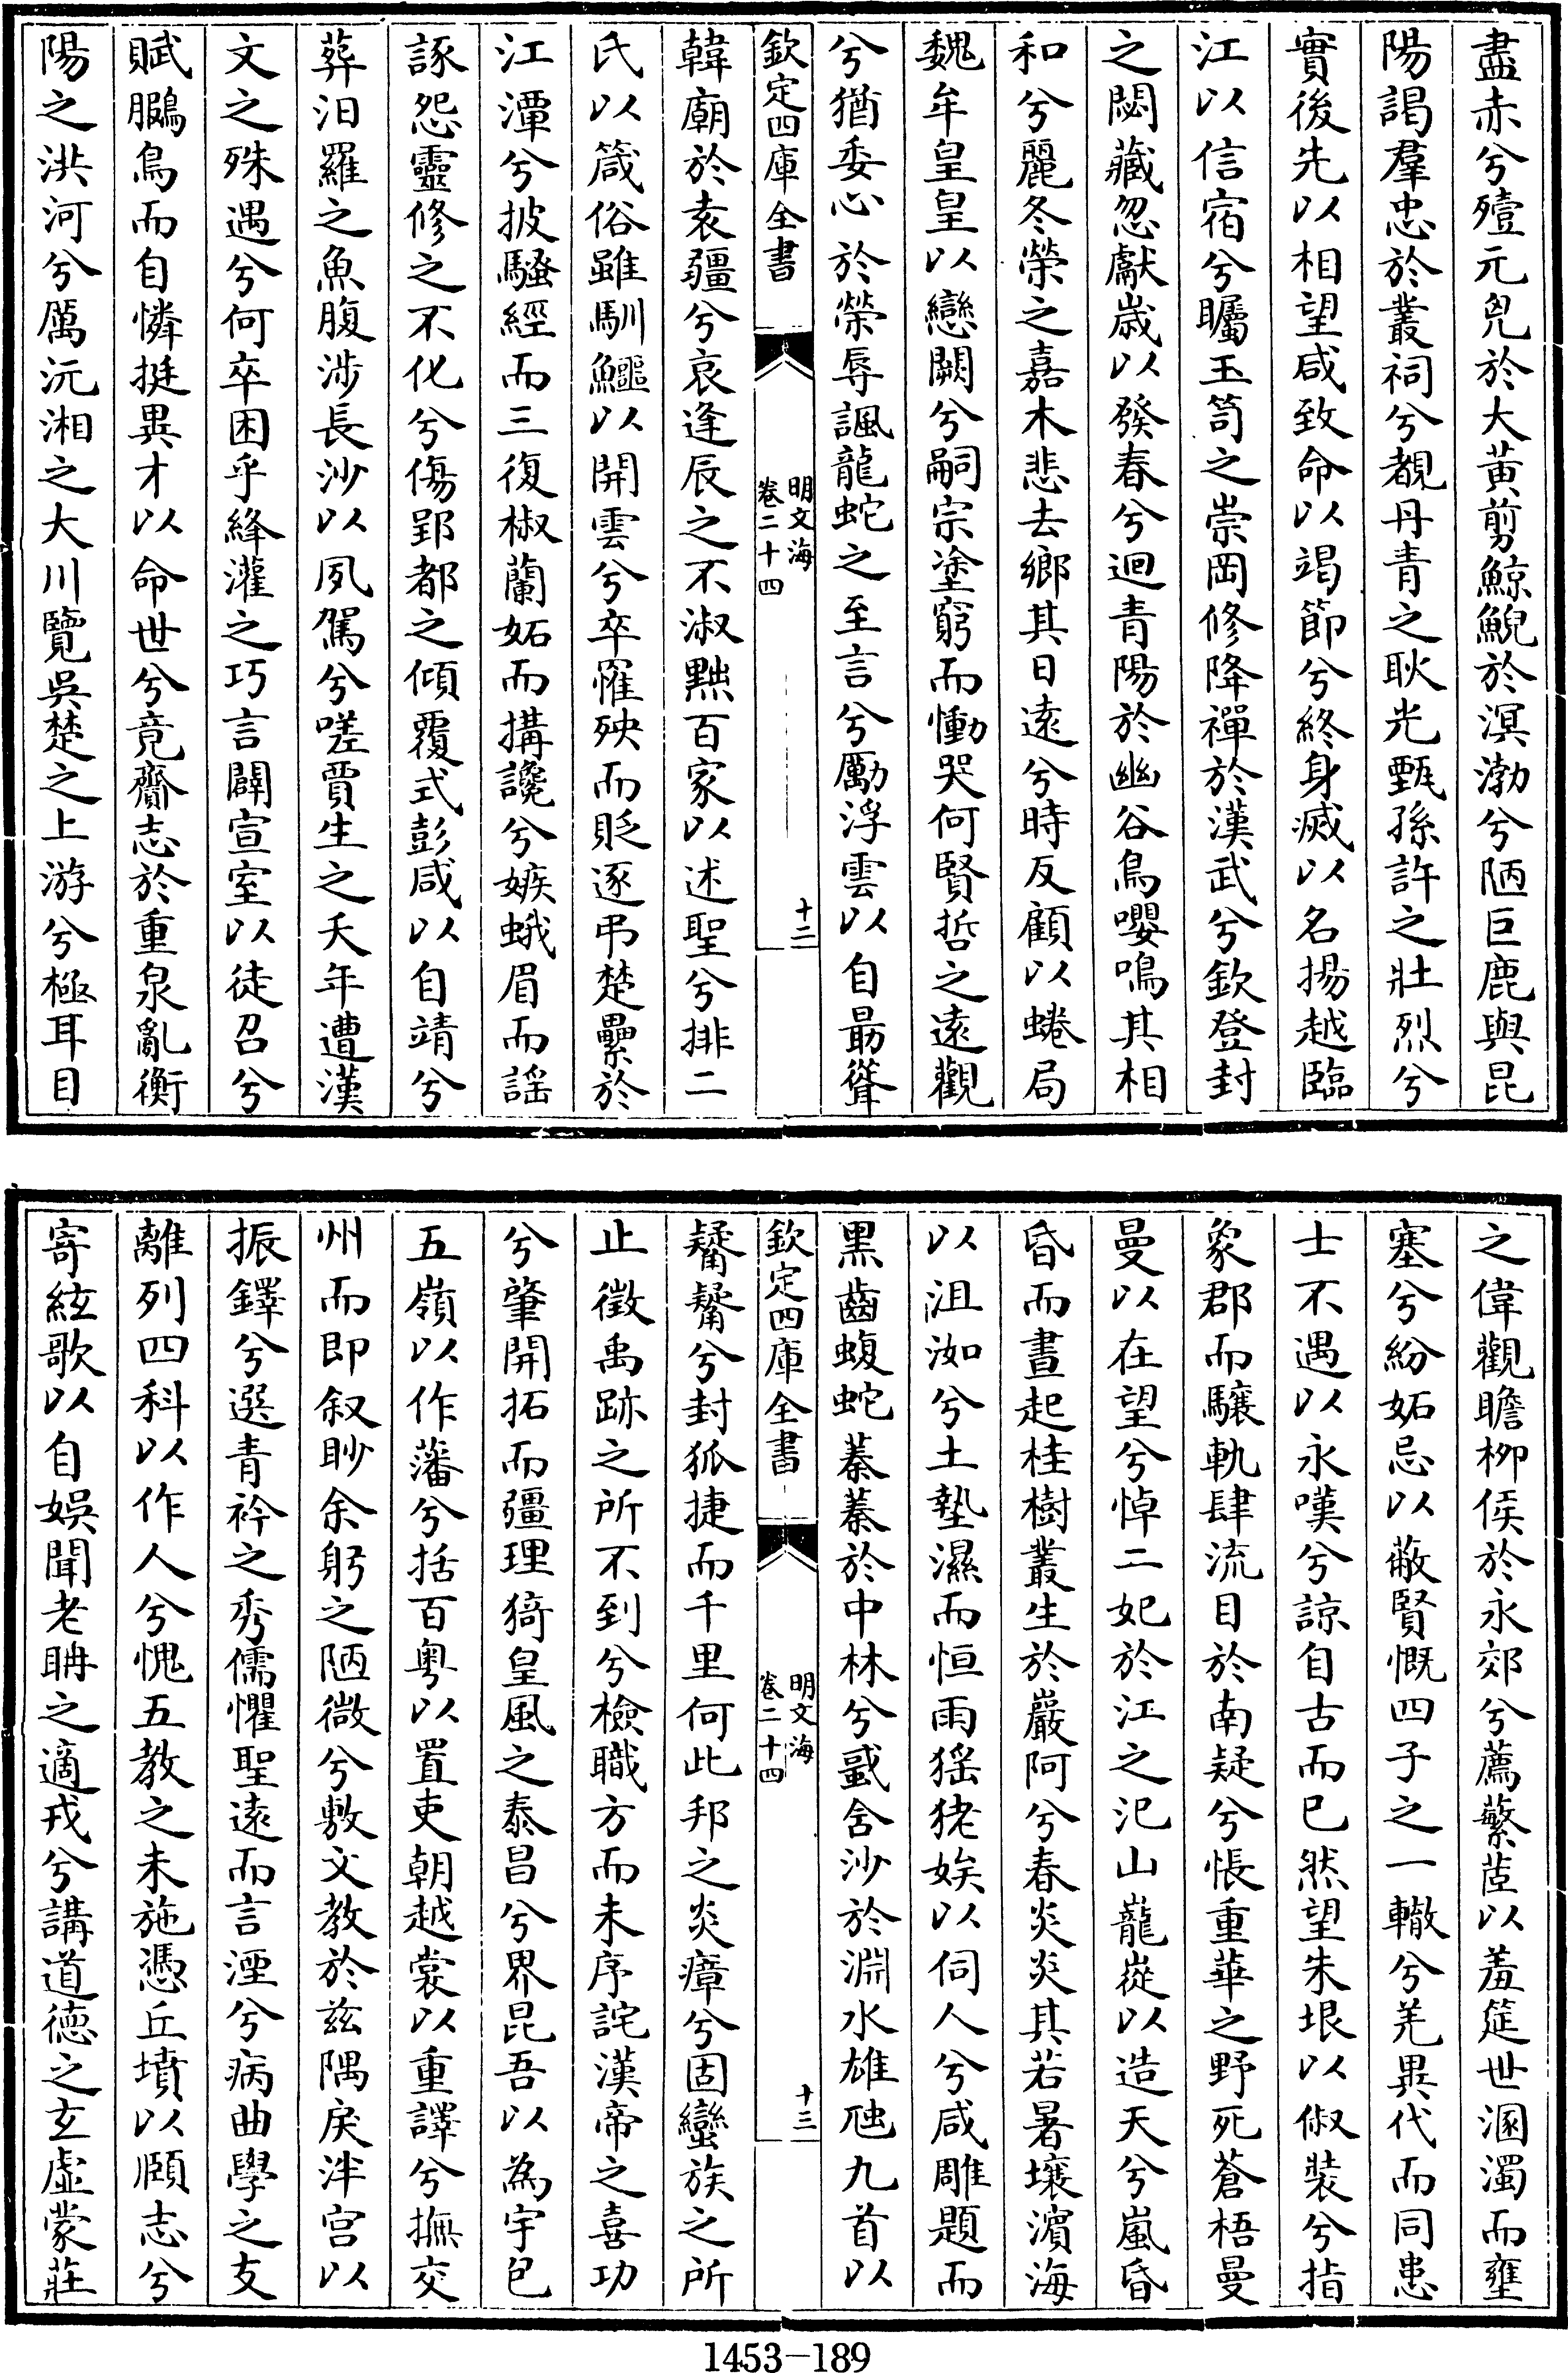 盡赤兮殪元兇於大黃剪鯨鯢於溟渤兮陋巨鹿與昆
陽謁羣忠於叢祠兮覩丹青之耿光甄孫許之壯烈兮
實後先以相望咸致命以竭節兮終身滅以名揚越臨
江以信宿兮矚玉笥之崇岡修降禪於漢武兮欽登封
之閟藏忽獻歲以發春兮迴青陽於幽谷鳥嚶鳴其相
和兮麗冬榮之嘉木悲去鄉其日遠兮時反顧以蜷局
魏牟皇皇以戀闕兮嗣宗塗窮而慟哭何賢哲之遠觀
兮猶委心於榮辱諷龍蛇之至言兮勵浮雲以自勗聳
欽定四庫全書
明文海
卷二十四
十二
韓廟於袁疆兮哀逢辰之不淑黜百家以述聖兮排二
氏以箴俗雖馴鱷以開雲兮卒罹殃而貶逐弔楚纍於
江潭兮披騷經而三復椒蘭妬而搆讒兮嫉蛾眉而謡
諑怨靈修之不化兮傷郢都之傾覆式彭咸以自靖兮
葬汨羅之魚腹涉長沙以夙駕兮嗟賈生之夭年遭漢
文之殊遇兮何卒困乎絳灌之巧言闢宣室以徒召兮
賦鵩鳥而自憐挺異才以命世兮竟齎志於重泉亂衡
陽之洪河兮厲沅湘之大川覽吳楚之上游兮極耳目
之偉觀瞻柳侯於永郊兮薦蘩茝以羞筵世溷濁而壅
塞兮紛妬忌以蔽賢慨四子之一轍兮羌異代而同患
士不遇以永嘆兮諒自古而已然望朱垠以俶裝兮指
象郡而驤軌肆流目於南疑兮悵重華之野死蒼梧曼
曼以在望兮悼二妃於江之汜山巃嵷以造天兮嵐昏
昏而晝起桂樹叢生於巖阿兮春炎炎其若暑壤濱海
以沮洳兮土墊濕而恒雨猺狫娭以伺人兮咸雕題而
黑齒蝮蛇蓁蓁於中林兮蜮含沙於淵水雄虺九首以
欽定四庫全書
明文海
卷二十四
十三
鬙鬙兮封狐捷而千里何此邦之炎瘴兮固蠻族之所
止徵禹跡之所不到兮檢職方而未序詫漢帝之喜功
兮肇開拓而疆理猗皇風之泰昌兮界昆吾以為宇包
五嶺以作藩兮括百粤以置吏朝越裳以重譯兮撫交
州而即叙眇余躬之陋微兮敷文教於兹隅戾泮宫以
振鐸兮選青衿之秀儒懼聖遠而言湮兮病曲學之支
離列四科以作人兮愧五教之未施憑丘墳以頤志兮
寄絃歌以自娛聞老聃之適戎兮講道德之玄虛蒙莊
1453-189